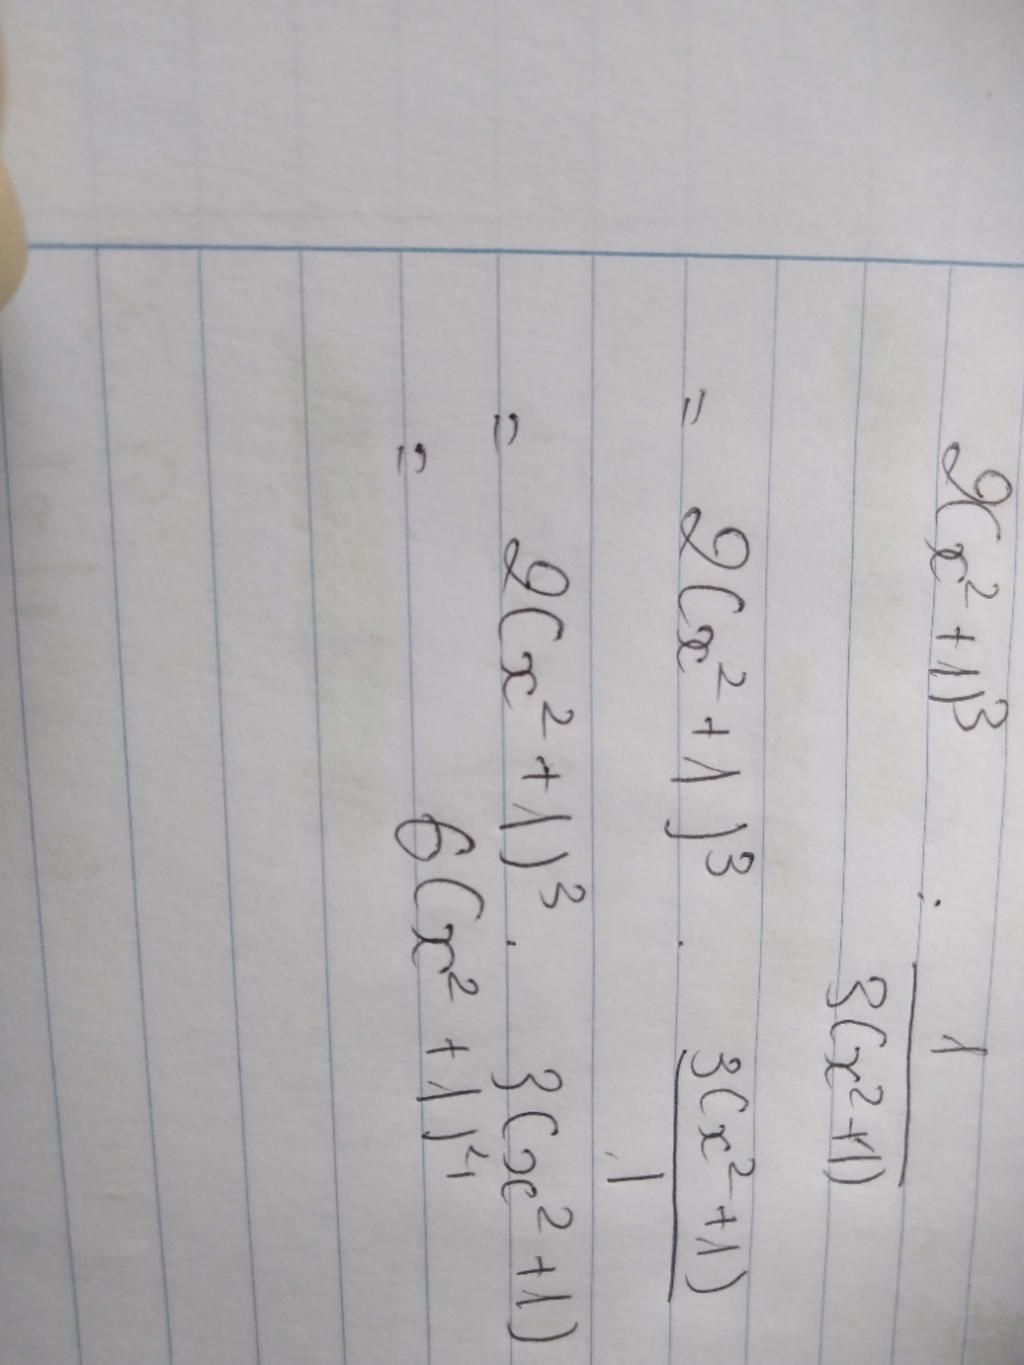 2(x² + 1)³ : 1 / 3(x² + 1)
= 2(x² + 1)³ . 3(x² + 1) / 1
= 2(x² + 1)³ . 3(x² + 1)
= 6(x² + 1)⁴